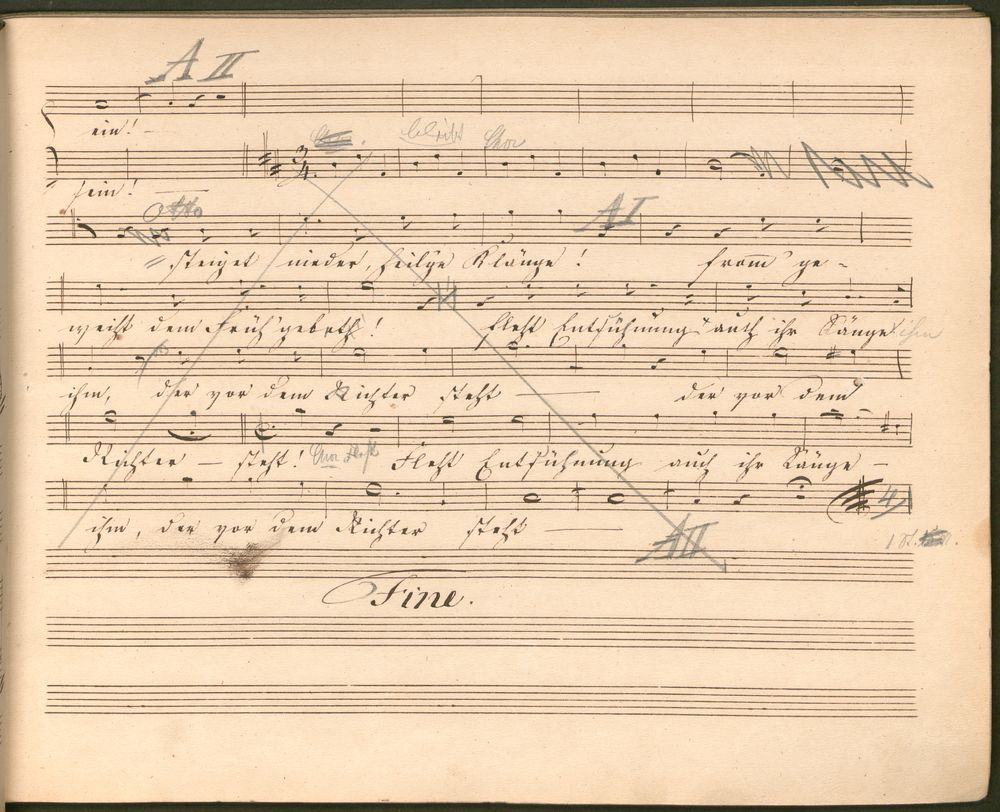 A II
ein! -
bleibt Chor
3/4
sein!
Otto A I
steiget nieder, heil'ge Klänge! fromm ge-
weiht dem Früh'gebeth! Fleht Entsühnung auch ihr Sänge ihm
ihm, der vor dem Richter steht — der vor dem
Richter — steht! Chor Fleht Fleht Entsühnung auch ihr Sänge -
ihm, der vor dem Richter steht —
A II
Fine.